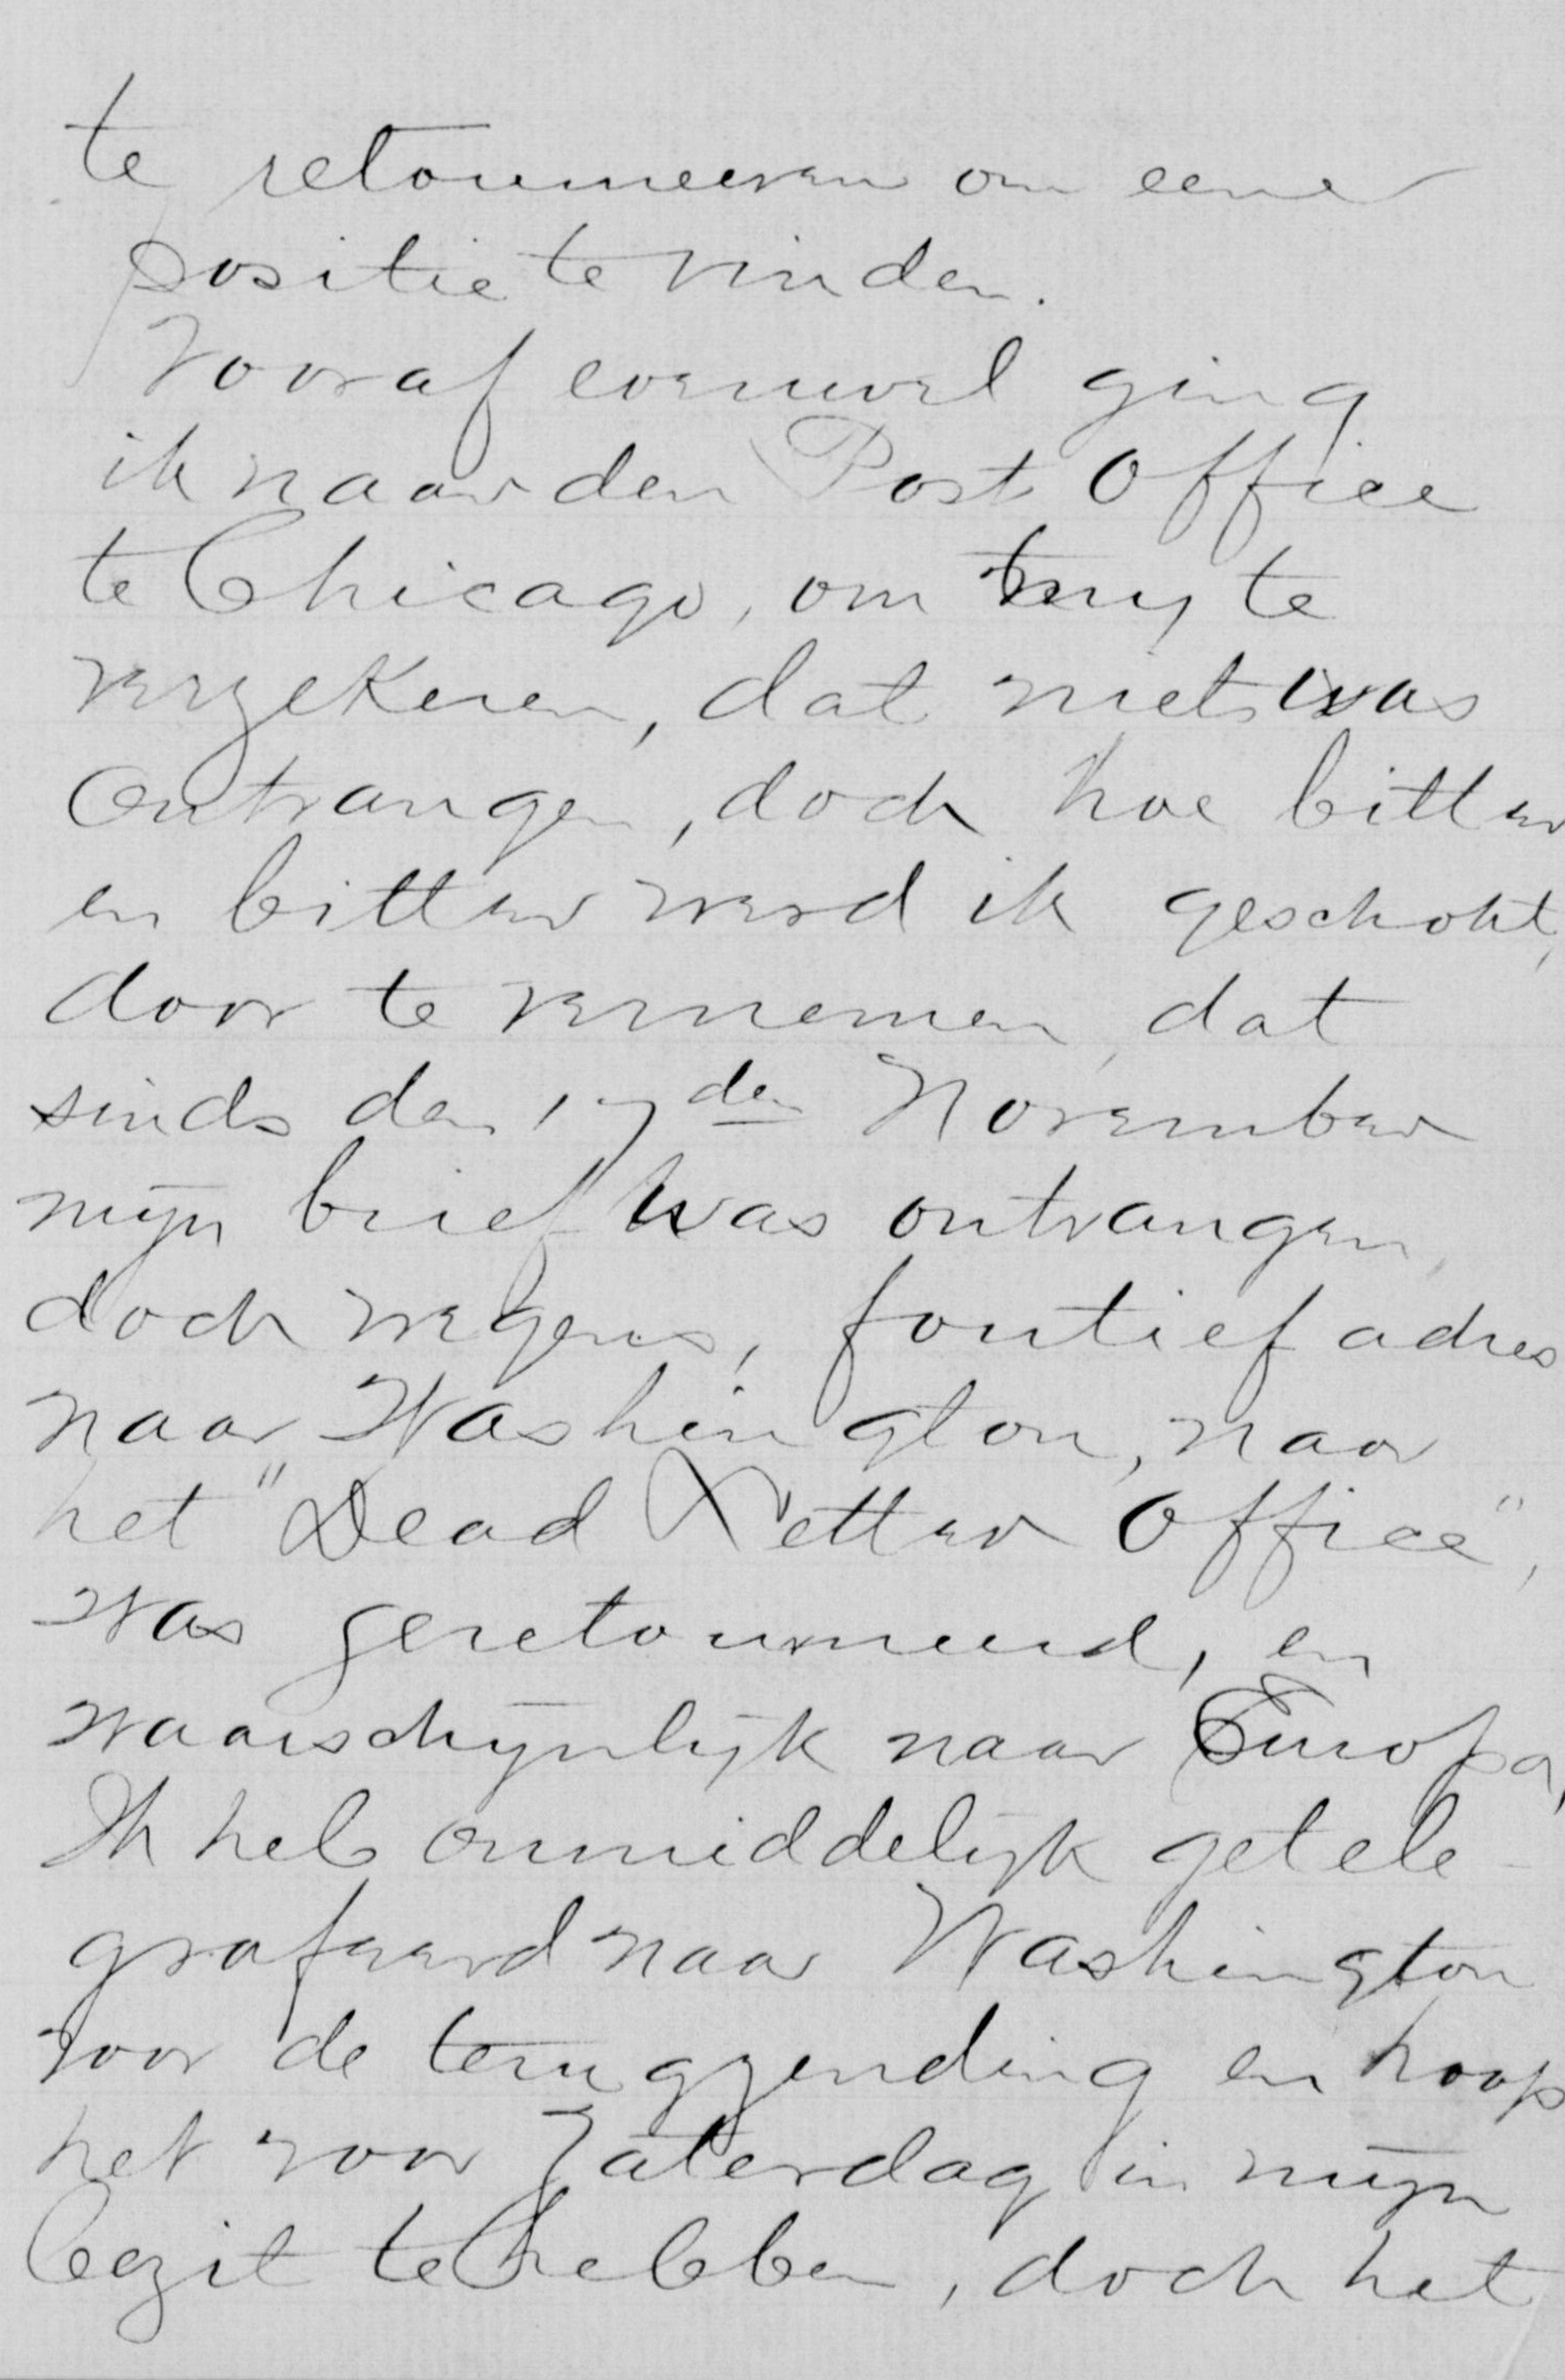 te retourneeren om eene
positie te vinden.
Vooraf evenwel ging
ik naar den Post Office
te Chicago, om my te
verzekeren, dat niets was
ontvangen, doch hoe bitter
en bitter werd ik geschokt,
door te vernemen, dat
sinds den 17den November
mijn brief was ontvangen,
doch wegens, foutief adres
naar Washington, naar
het "Dead Letter Office",
was geretourneerd, en
waarschijnlijk naar Europa,
Ik heb onmiddelijk getele-
grafeerd naar Washington
voor de terugzending en hoop
het voor Zaterdag in mijn
bezit te hebben, doch het